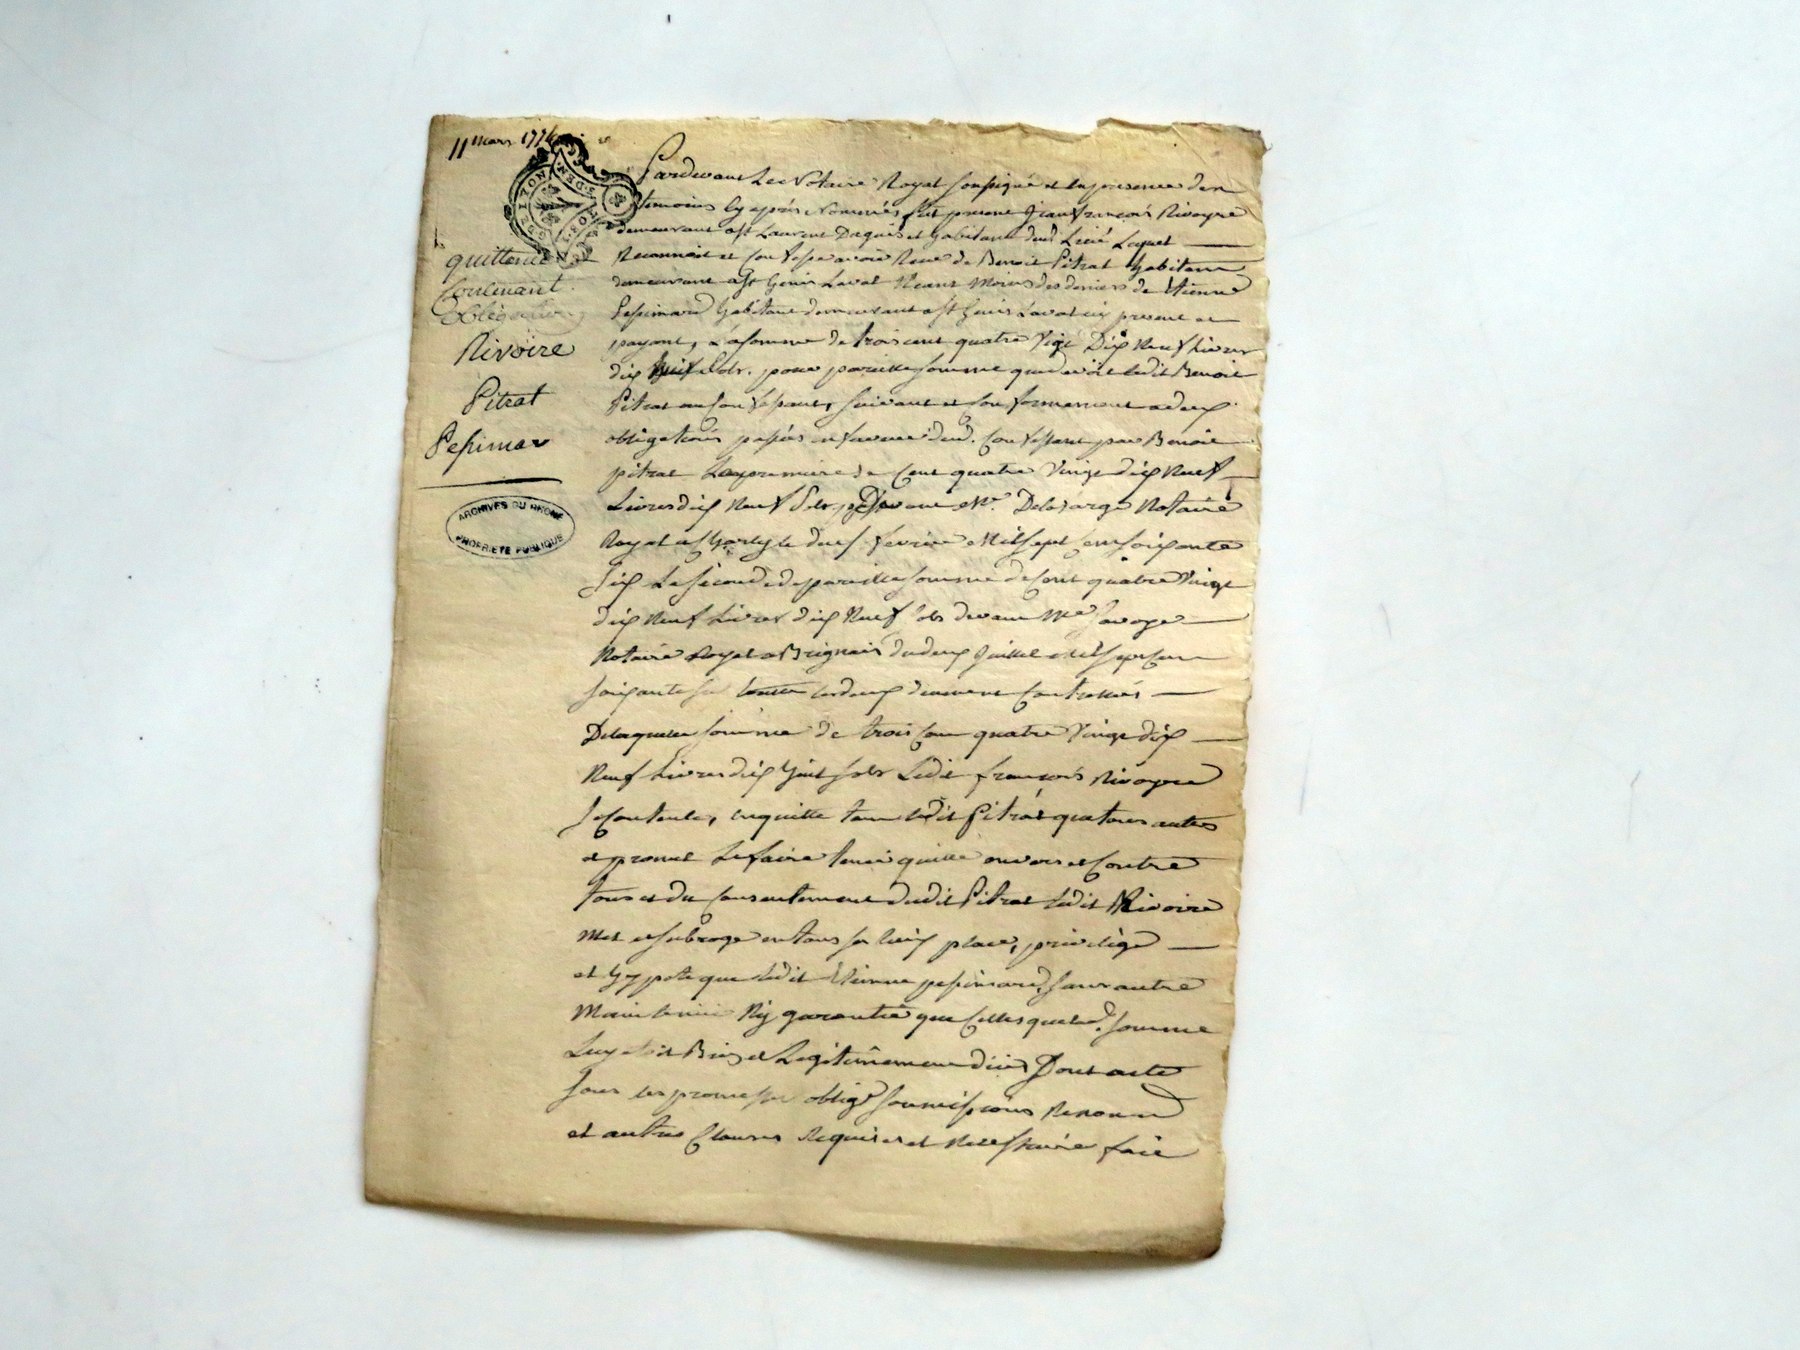 11 mars 1774
GEN. DE LYON
quittance
Contenant
obligation
Rivoire
Pitrat
Pesimar
ARCHIVES DU RHÔNE
PROPRIÉTÉ PUBLIQUE
Pardevant Le Notaire Royal soussigné et en presence des
temoins cy après Nommés fut present Jean françois Rivoyre
demeurant a st Laurent Dagnis et habitant dud Lieu Lequel
Reconnoit et Confesse avoir Receu de Benoit Pitrat habitant
demeurant a st Genis Laval Neant Moins des deniers de Etienne
Pesimard habitant demeurant a st Genis Laval icy present et
payant, La somme de trois cent quatre Vigt Dix Neuf Livres
dix huit sols. pour pareille somme que devoit ledit Benoit
Pitrat au Confessant, suivant et Conformement a deux
obligations passées en faveur dud. Confessant par Benoit
pitrat La premiere de Cent quatre Vingt dix Neuf
Livres dix Neuf sols pardevant Me. Delafarge Notaire
Royal a le deux fevrier Mil sept Cent soixante
six La seconde de pareille somme de Cent quatre Vingt
dix Neuf Livres dix Neuf sols devant Me
Notaire Royal a Brignais du deux Juillet Mil sept Cent
soixante six toutte les deux duement Controllées
De laquelle somme de trois Cent quatre Vingt dix
Neuf Livres dix huit sols Ledit françois Rivoyre
se Contente, en quitte tant ledit Pitrat que tous autres
et promet Le faire tenir quitte envers et Contre
tous et du Consentement dudit Pitrat ledit Rivoire
Met et subroge en tous ses lieux place, privilége
et hypoteque ledit Etienne pesimard, sans autre
Maintenüe Ny garantie que Celles que lad. somme
Luy etoit Bien et Legitimement düe Dont acte
sous les promesses oblig. soumissions Renon
et autres Clauses Requises et Necessaire fait